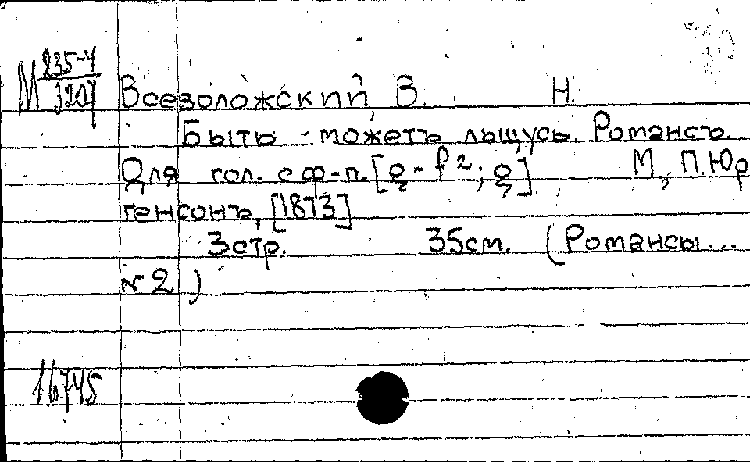 М 235-4/1207 Всеволожский, В. Н.
Быть-можетъ льщусь. Романсъ.
Для гол. с ф-п. [e - f²; e] М., П. Юр
генсонъ, [1873]
3стр. 35см. (Романсы...
№2)
16745